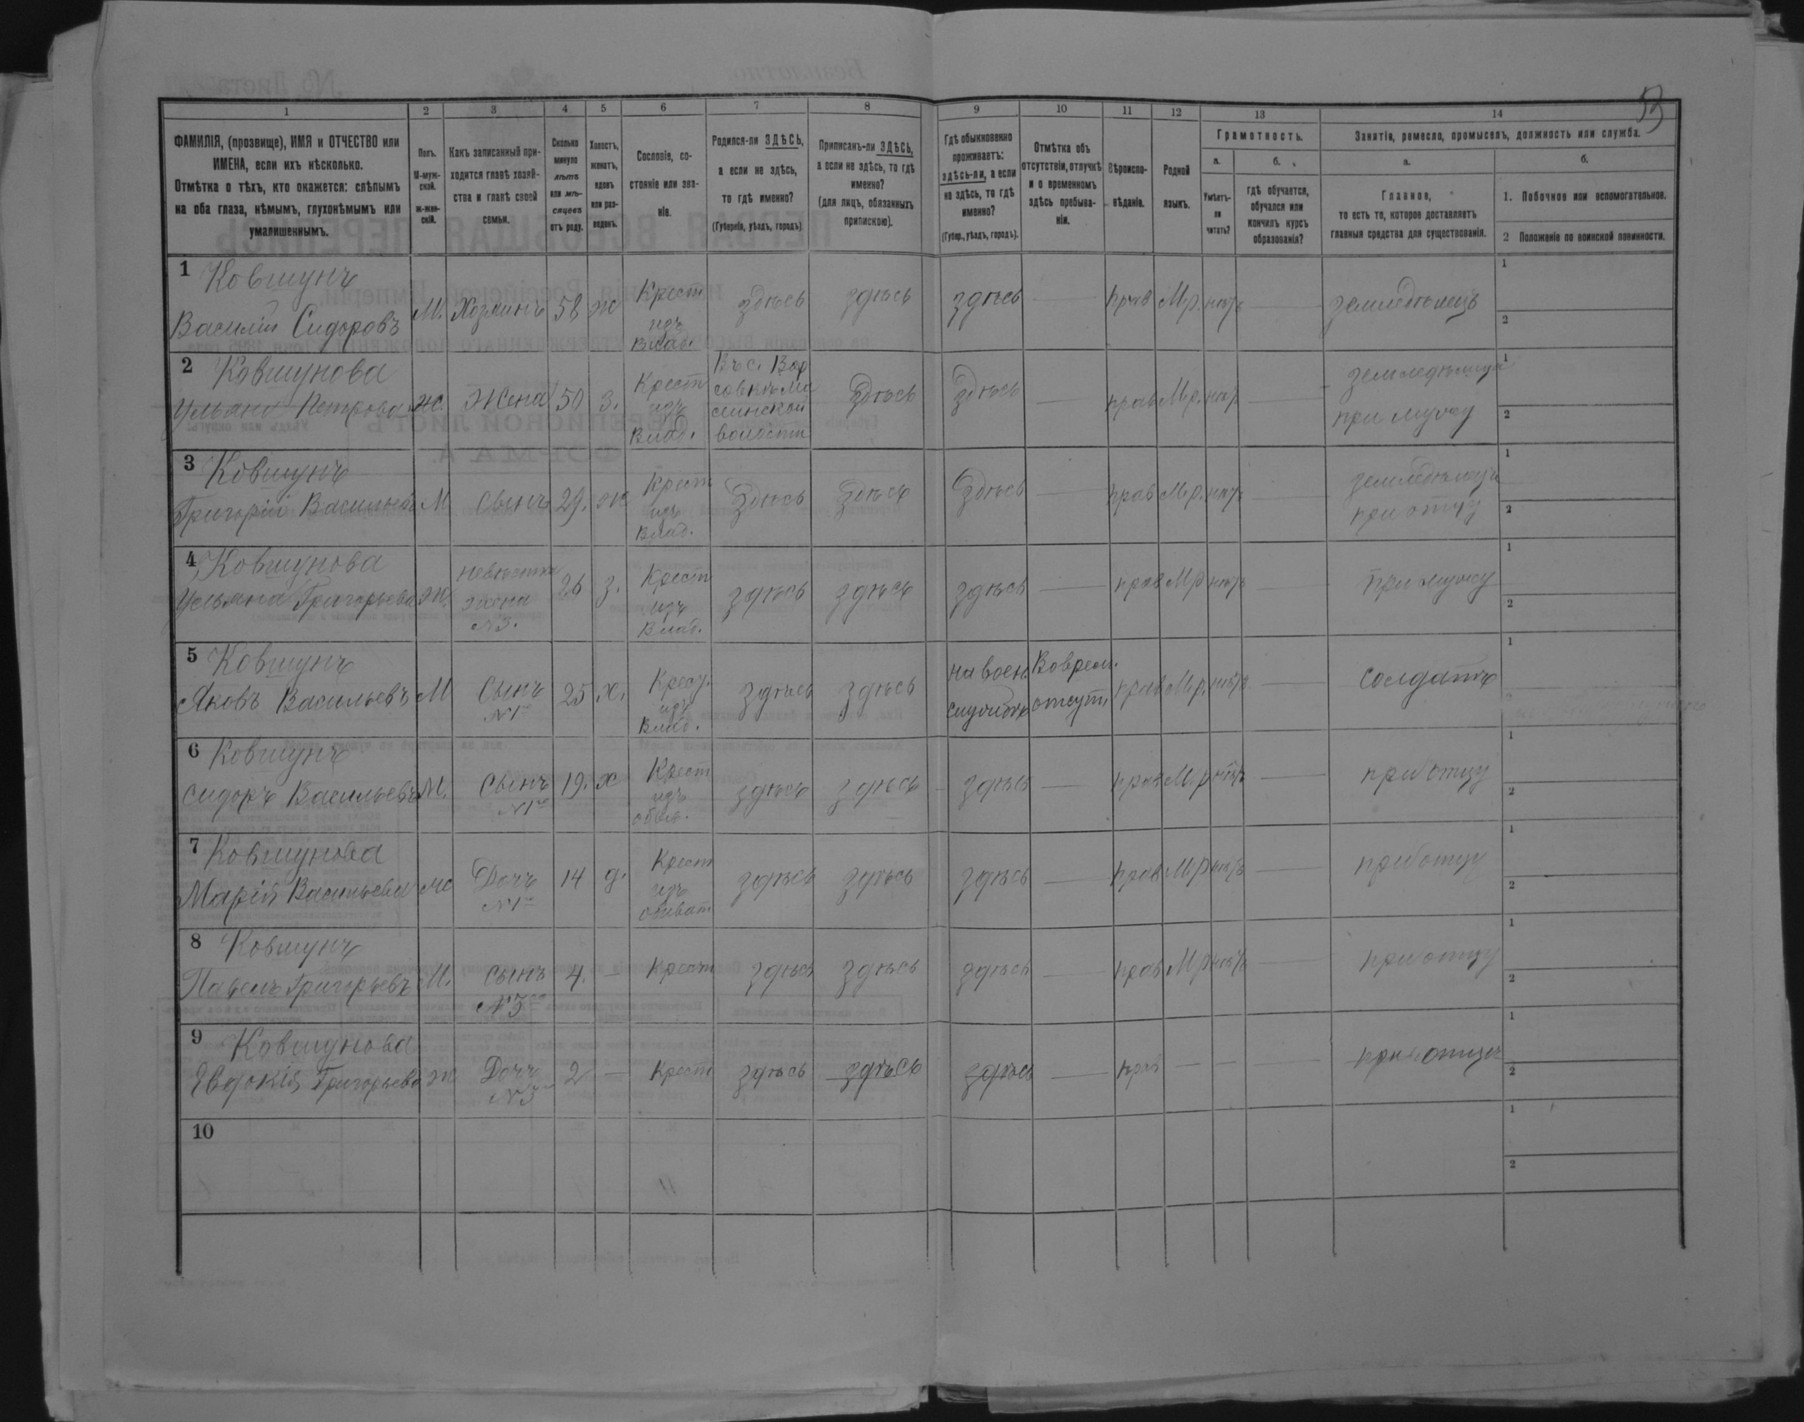 53
1 2 3 4 5 6 7 8 9 10 11 12 13 14
ФАМИЛІЯ, (прозвище), ИМЯ и ОТЧЕСТВО или
ИМЕНА, если ихъ нѣсколько.
Отмѣтка о тѣхъ, кто окажется: слѣпымъ
на оба глаза, нѣмымъ, глухонѣмымъ или
умалишеннымъ.
Полъ.
М-муж-
ской.
ж-жен-
скій.
Какъ записанный при-
ходится главѣ хозяй-
ства и главѣ своей
семьи.
Сколько
минуло
лѣтъ
или мѣ-
сяцевъ
отъ роду.
Холостъ,
женатъ,
вдовъ
или раз-
веденъ.
Сословіе, со-
стояніе или зва-
ніе.
Родился-ли ЗДѢСЬ,
а если не здѣсь,
то гдѣ именно?
(Губернія, уѣздъ, городъ).
Приписанъ-ли ЗДѢСЬ,
а если не здѣсь, то гдѣ
именно?
(для лицъ, обязанныхъ
припискою).
Гдѣ обыкновенно
проживаетъ:
здѣсь-ли, а если
не здѣсь, то гдѣ
именно?
(Губер., уѣздъ, городъ).
Отмѣтка объ
отсутствіи, отлучкѣ
и о временномъ
здѣсь пребыва-
ніи.
Вѣроиспо-
вѣданіе.
Родной
языкъ.
Грамотность.
а.
Умѣетъ-
ли
читать?
б.
гдѣ обучается,
обучался или
кончилъ курсъ
образованія?
Занятіе, ремесло, промыселъ, должность или служба.
а.
Главное,
то есть то, которое доставляетъ
главныя средства для существованія.
б.
1. Побочное или вспомогательное.
2 Положеніе по воинской повинности.
1 Ковшунъ
Василій Сидоровъ М. Хозяинъ 58 ж Крест здѣсь здѣсь здѣсь — прав Мр. нѣтъ — земледѣлецъ
изъ
Влад.
2 Ковшунова
Ульяна Петрова ж. Жена 50 з. Крест
изъ
Влад.
Въ с.
волости
здѣсь здѣсь — прав Мр. нѣтъ
при мужу
3 Ковшунъ
Григорій Васильевъ М Сынъ 29. ж Крест
изъ
Влад.
здѣсь здѣсь здѣсь — прав Мр. нѣтъ —
земледѣлецъ
при отцу
4 Ковшунова
Ульяна Григорьева ж. невѣстка
жена
№3.
26 з. Крест
изъ
Влад.
здѣсь здѣсь здѣсь — прав Мр нѣтъ — при мужу
5 Ковшунъ
Яковъ Васильевъ М Сынъ
№1го
25 х.
изъ
Влад.
здѣсь здѣсь
на воен
службѣ
Воврем.
отсут.
прав Мр. нѣтъ — солдатъ
6 Ковшунъ
Сидоръ Васильевъ М. Сынъ
№1го
19. х Крест
изъ
обыв.
здѣсь здѣсь здѣсь — прав Мр нѣтъ — при отцу
7 Ковшунова
Марія Васильева ж Дочъ
№1го
14 д. Крест
изъ
обыват
здѣсь здѣсь здѣсь — прав Мр нѣтъ — при отцу
8 Ковшунъ
Павелъ Григорьевъ М. сынъ
№3го
4. — Крест здѣсь здѣсь здѣсь — прав Мр нѣтъ — при отцу
9 Ковшунова
Явдокія Григорьева ж Дочъ
№3
2 — Крест здѣсь здѣсь здѣсь — прав — — — при отцу
10